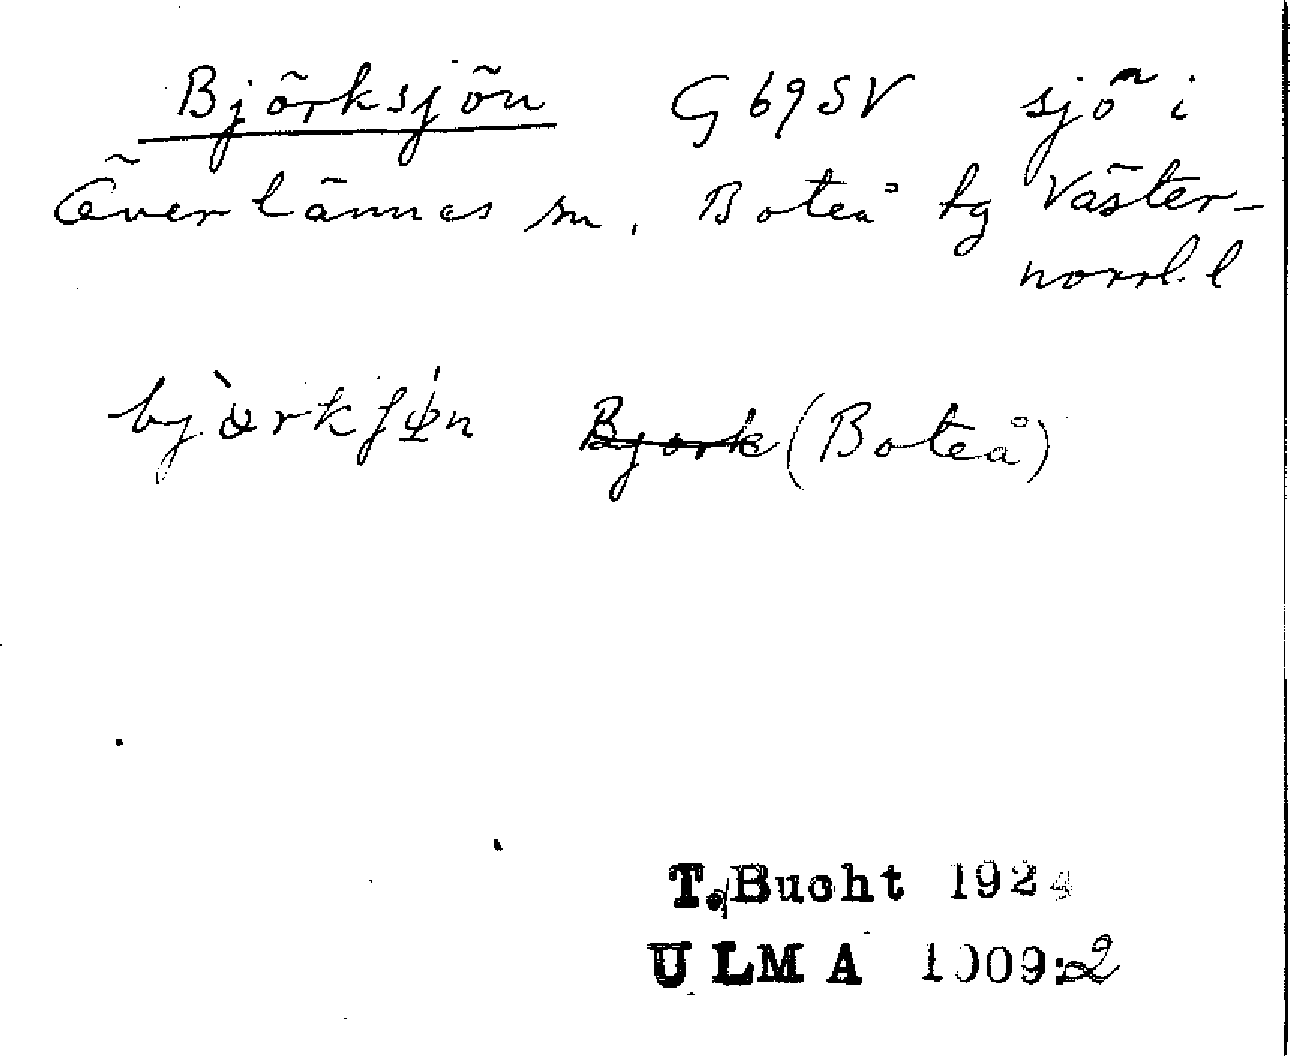 Björksjön G69SV sjö i
Överlännäs sn. Boteå tg Väster-
norrl. l
bjɵ̀rkʃɵ́n Bjork (Boteå)
T. Bucht 1924
ULMA 1009:2